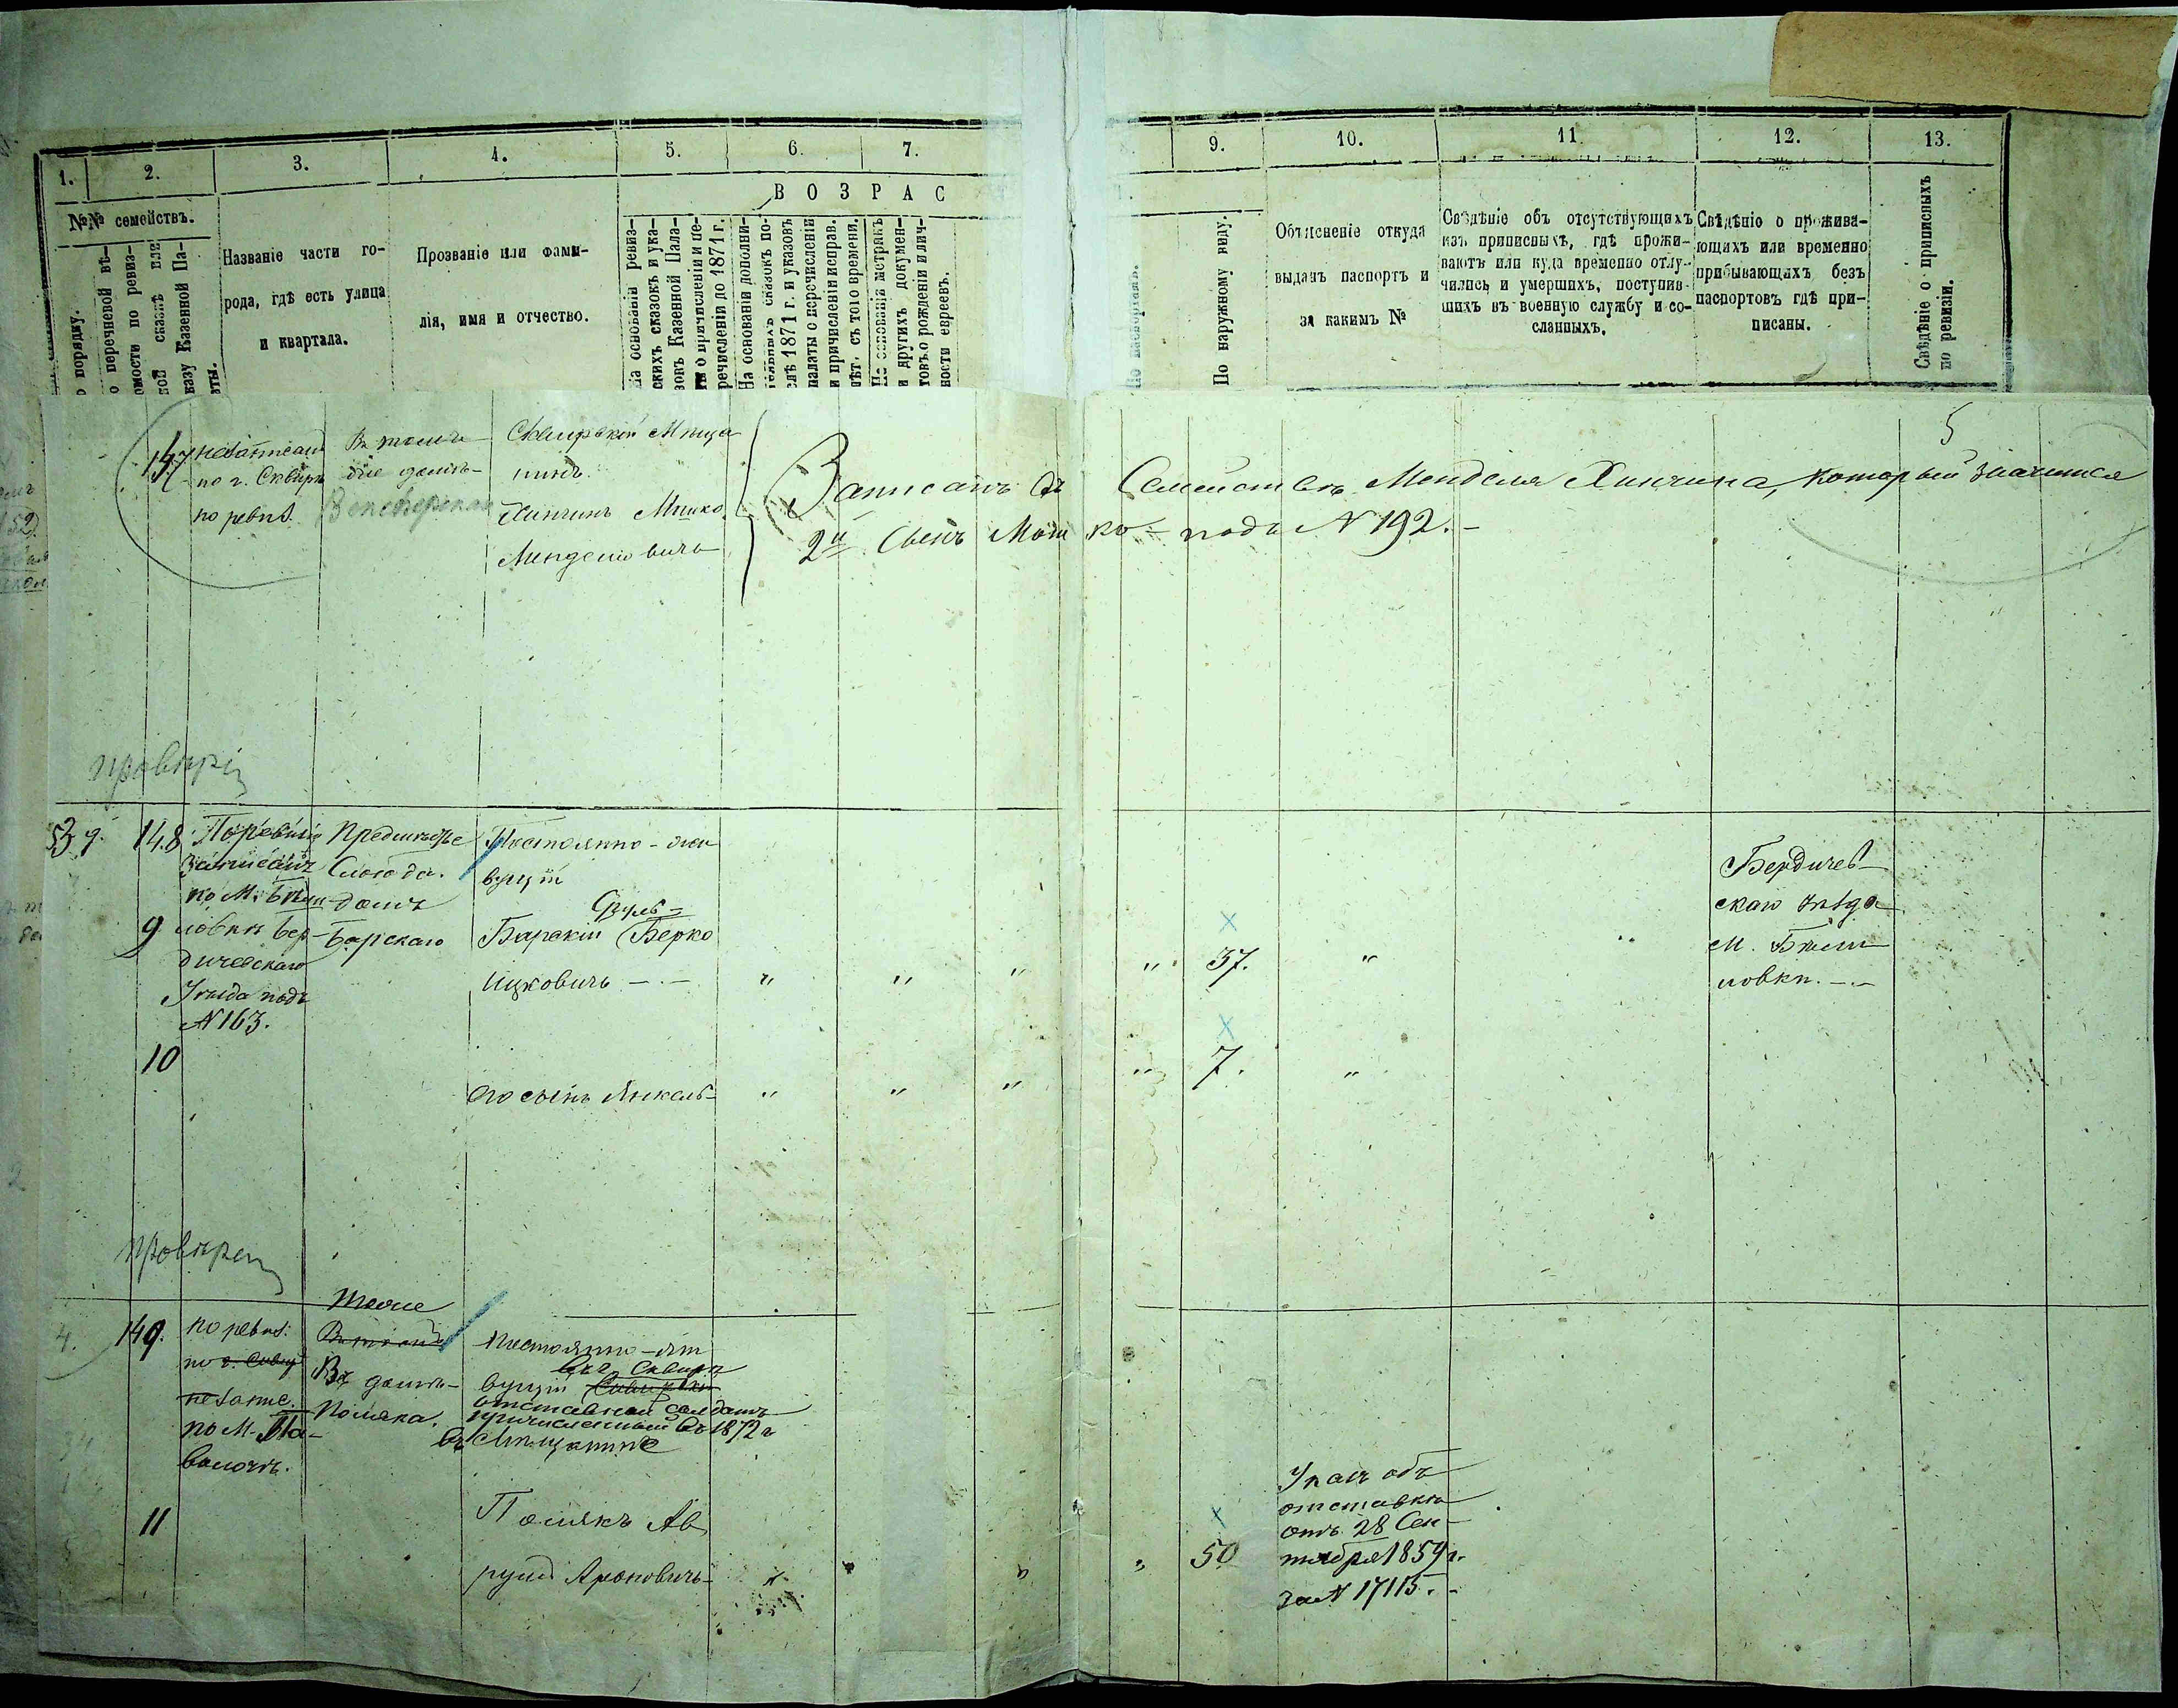 1.
2.
3.
4.
5.
6.
7.
9.
10.
11.
12.
13.
В О З Р А С
№№ семействъ.
Названіе части го-
рода, гдѣ есть улица
и квартала.
Прозваніе или фами-
лія, имя и отчество.
На основаніи ревиз-
скихъ сказокъ и ука-
зовъ Казенной Пала-
ты о причисленіи и пе-
речисленіи до 1871 г.
На основаніи дополни-
тельныхъ сказокъ по-
слѣ 1871 г. и указовъ
палаты о перечисленіи
и причисленіи исправ.
лѣт. съ того времени.
На основаніи метрикъ
и других документ-
товъ о рожденіи и лич-
ности евреевъ.
По паспортамъ.
По наружному виду.
Объясненіе откуда
выданъ паспортъ и
за какимъ №
Свѣдѣніе объ отсутствующихъ
изъ приписныхъ, гдѣ прожи-
ваютъ или куда временно отлу-
чились и умершихъ, поступив-
шихъ въ военную службу и со-
сланныхъ.
Свѣдѣніе о прожива-
ющихъ или временно
прибывающихъ безъ
паспортовъ гдѣ при-
писаны.
Свѣдѣніе о приписныхъ
по ревизіи.
5
147
незаписанъ
по г. Сквирѣ
по ревиз.
Въ томъ-
же домѣ-
Сквирскій Мѣща
нинъ
Хинчинъ Мошко
Менделевичъ
Записанъ въ Семействѣ Менделя Хинчина, который значится
2й Сынъ Мошко - подъ № 192. -
провѣрен
53 9.
148
По ревизіи
записанъ
по М. Бѣли
ловкѣ Бер-
дичевскаго
Уѣзда подъ
№ 163.
Предмѣстье
Слобода.
домъ
Барскаго
Постоянно-жи
вущій
Сруль-
Барскій Берко
Ицковичъ - . -
9
37.
Бердичев
скаго уѣзда
М. Бѣли
ловки. - . -
10
его сынъ Янкель-
7.
провѣрен
149.
по ревиз:
по г. Сквир
незапис.
по М. Па-
волочѣ.
Тоже
Въ томъ
Въ домѣ-
Поляка.
Постоянно-жи
въ г. Сквирѣ
вущій Сквирскій
отставной солдатъ
причисленный въ 1872 г
въ Мѣщанине
11
Полякъ Ав
румъ Ароновичъ-
50
Указъ объ
отставкѣ
отъ 28 Сен-
тября 1859 г.
за № 17115. -